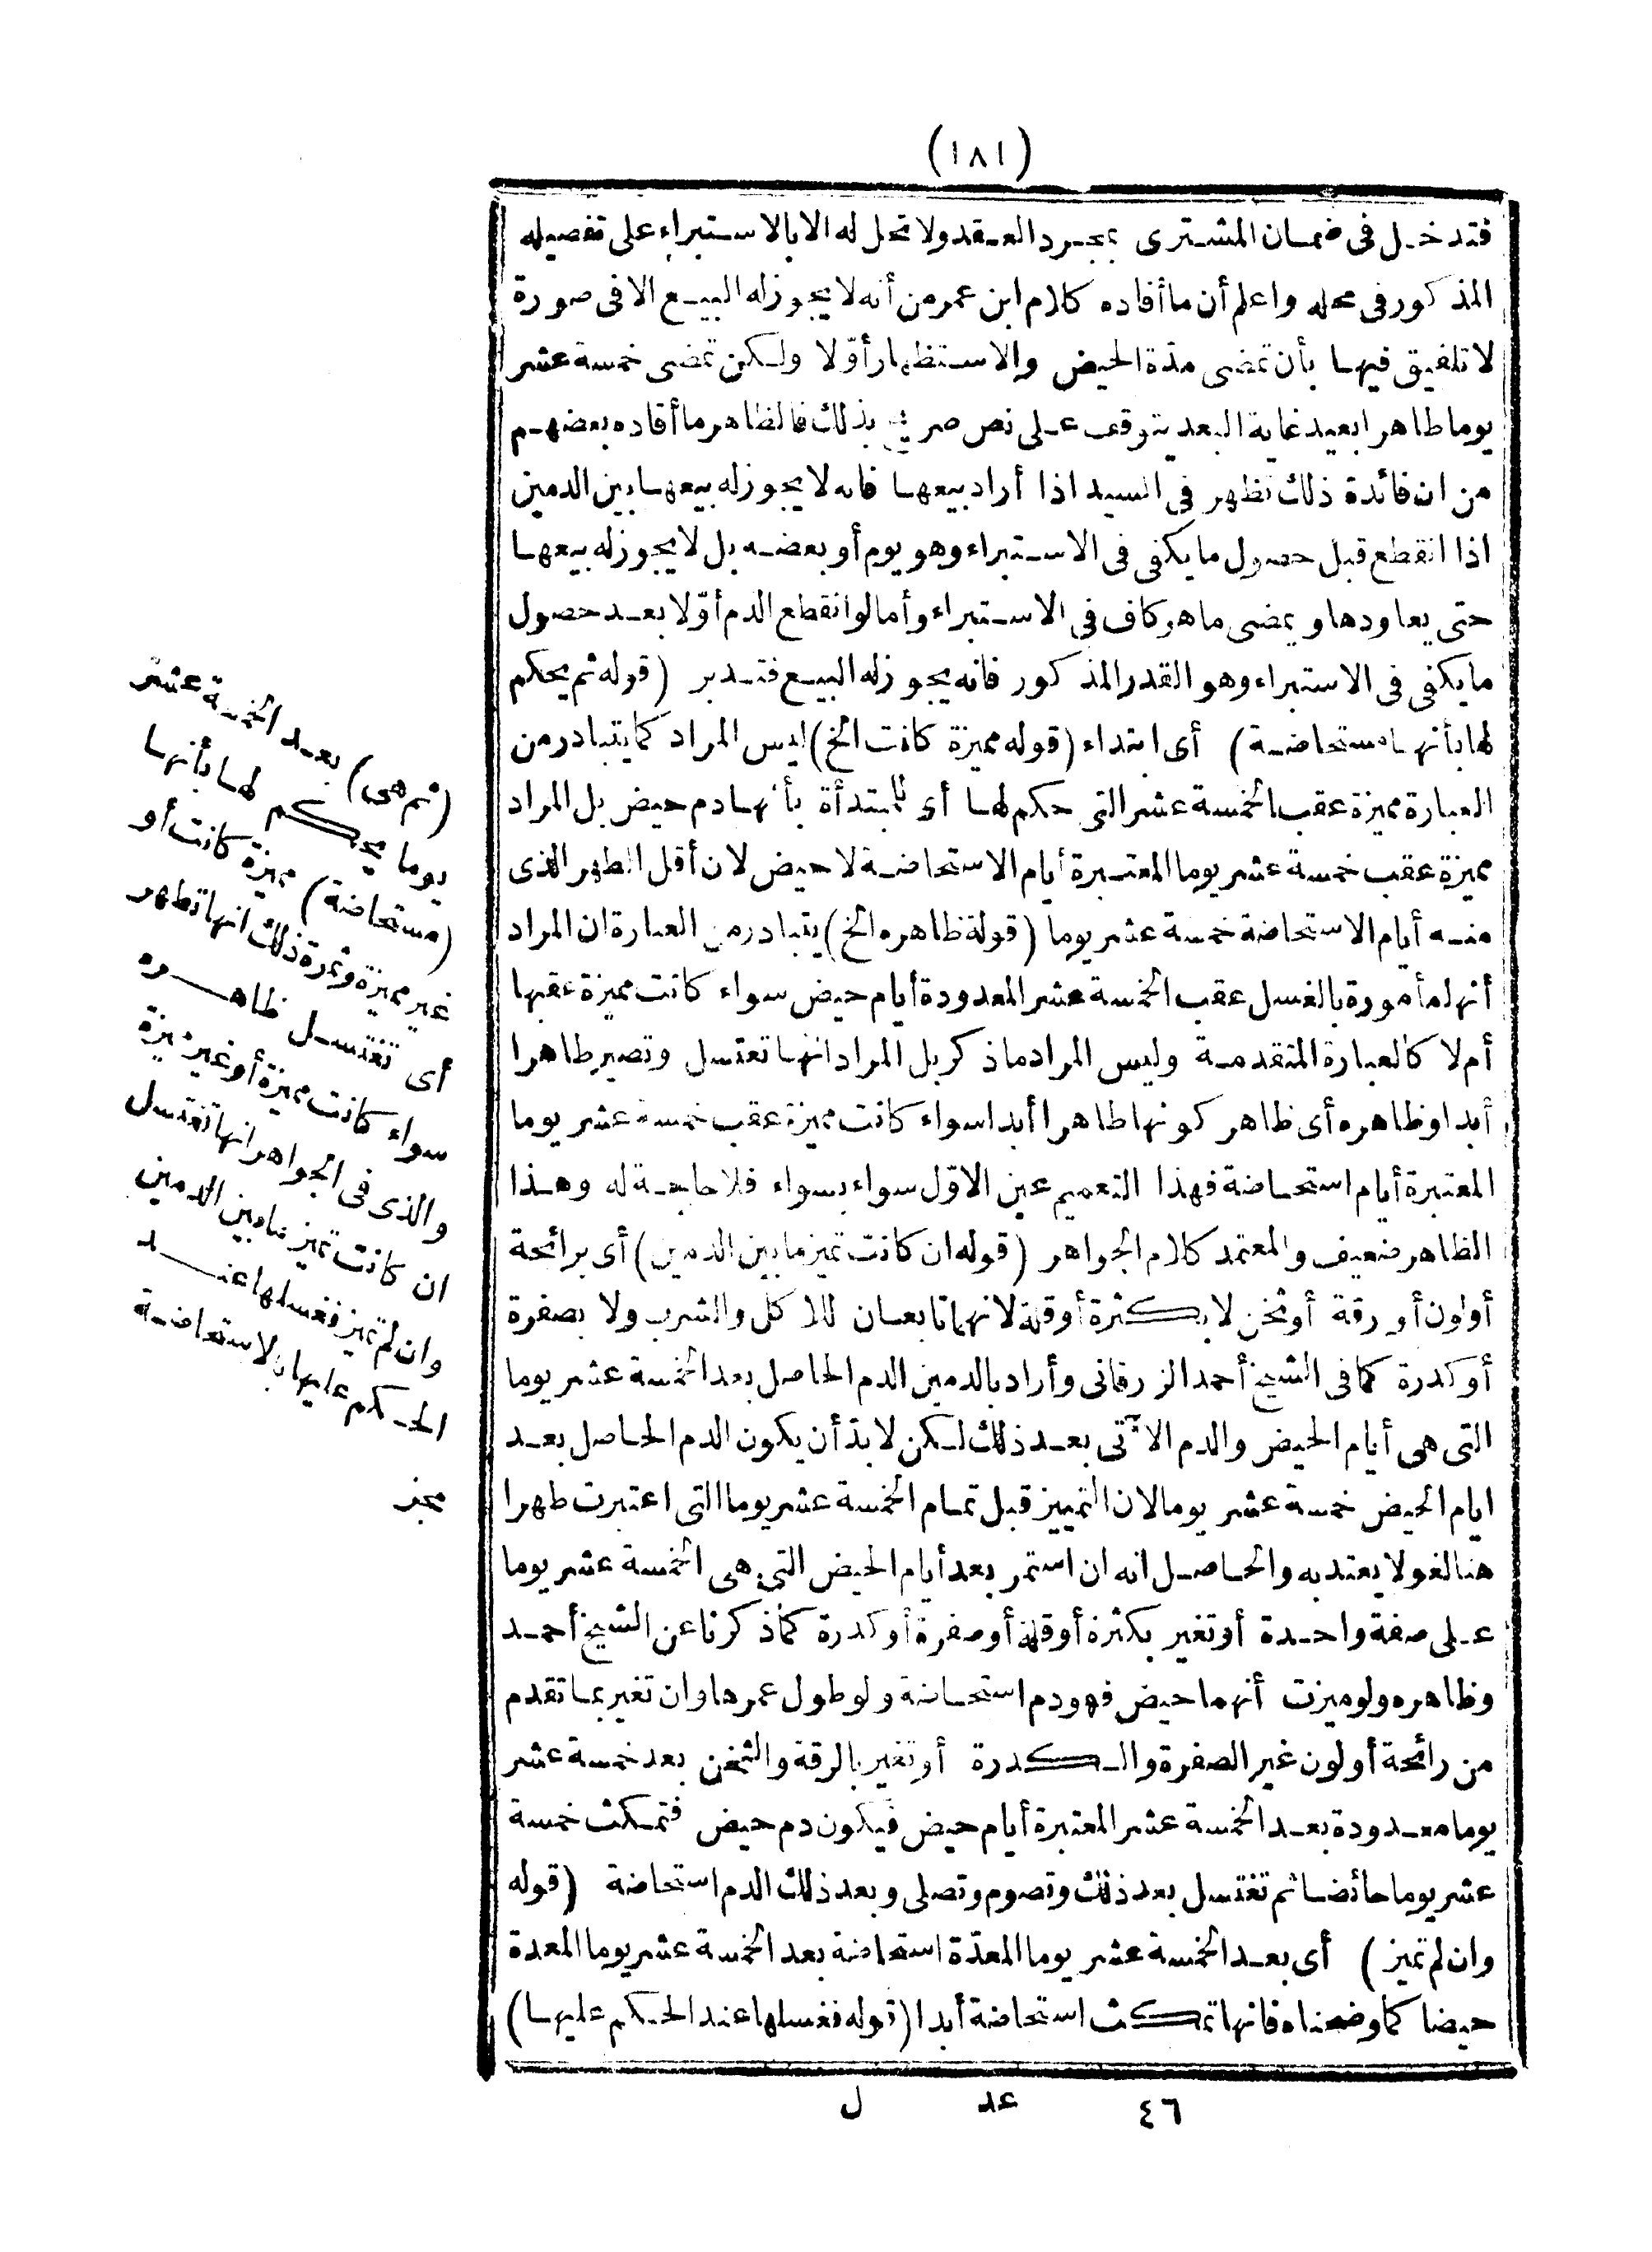 (١٨١)
فتدخل فى ضمان المشترى بمجرد العقد ولا تحل له الا بالاستبراء على تفصيله
المذكور فى محله واعلم أن ما أفاده كلام ابن عمر من أنه لا يجوز له البيع الا فى صورة
لا تلفيق فيها بأن تمضى مدّة الحيض والاستظهار أوّلا ولكن تمضى خمسة عشر
يوما طاهرا بعيد غاية البعد يتوقف على نص صريح بذلك فالظاهر ما أفاده بعضهم
من ان فائدة ذلك تظهر فى السيد اذا أراد بيعها فانه لا يجوز له بيعها بين الدمين
اذا انقطع قبل حصول ما يكفى فى الاستبراء وهو يوم أو بعضه بل لا يجوز له بيعها
حتى يعاودها ويمضى ما هو كاف فى الاستبراء وأما لو انقطع الدم أوّلا بعد حصول
ما يكفى فى الاستبراء وهو القدر المذكور فانه يجوز له البيع فتدبر (قوله ثم يحكم
لها بأنها مستحاضة) أى ابتداء (قوله مميزة كانت الخ) ليس المراد كما يتبادر من
العبارة مميزة عقب الخمسة عشر التى حكم لها أى للمبتدأة بأنها دم حيض بل المراد
مميزة عقب خمسة عشر يوما المعتبرة أيام الاستحاضة لا حيض لان أقل الطهر الذى
منه أيام الاستحاضة خمسة عشر يوما (قوله ظاهره الخ) يتبادر من العبارة ان المراد
أنها مأمورة بالغسل عقب الخمسة عشر المعدودة أيام حيض سواء كانت مميزة عقبها
أم لا كالعبارة المتقدمة وليس المراد ماذكر بل المراد انها تغتسل وتصير طاهرا
أبدا وظاهره أى ظاهر كونها طاهرا أبدا سواء كانت مميزة عقب خمسة عشر يوما
المعتبرة أيام استحاضة فهذا التعميم عين الاوّل سواء بسواء فلا حاجة له وهذا
الظاهر ضعيف والمعتمد كلام الجواهر (قوله ان كانت تميز ما بين الدمين) أى برائحة
أو لون أو رقة أو ثخن لا بكثرة أو قلة لانهما تابعان للاكل والشرب ولا بصفرة
أو كدرة كما فى الشيخ أحمد الزرقانى وأراد بالدمين الدم الحاصل بعد الخمسة عشر يوما
التى هى أيام الحيض والدم الآتى بعد ذلك لكن لا بدّ أن يكون الدم الحاصل بعد
ايام الحيض خمسة عشر يوما لان التمييز قبل تمام الخمسة عشر يوما التى اعتبرت طهرا
هنا لغو لا يعتد به والحاصل انه ان استمر بعد أيام الحيض التى هى الخمسة عشر يوما
على صفة واحدة أو تغير بكثرة أو قلة أو صفرة أو كدرة كما ذكرنا عن الشيخ أحمد
وظاهره ولو ميزت أنهما حيض فهو دم استحاضة ولو طول عمرها وان تغير بما تقدم
من رائحة أو لون غير الصفرة والكدرة أو تغير بالرقة والثخن بعد خمسة عشر
يوما معدودة بعد الخمسة عشر المعتبرة أيام حيض فيكون دم حيض فتمكث خمسة
عشر يوما حائضا ثم تغتسل بعد ذلك وتصوم وتصلى وبعد ذلك الدم استحاضة (قوله
وان لم تميز) أى بعد الخمسة عشر يوما المعدّة استحاضة بعد الخمسة عشر يوما المعدة
حيضا كما وضحناه فانها تمكث استحاضة أبدا (قوله فغسلها عند الحكم عليها)
٤٦ عد ل
(ثم هى) بعد الخمسة عشر
يوما يحكم لها بأنها
(مستحاضة) مميزة كانت أو
غير مميزة وثمرة ذلك انها تطهر
أى تغتسل ظاهره
سواء كانت مميزة أو غير مميزة
والذى فى الجواهر انها تغتسل
ان كانت تميز ما بين الدمين
وان لم تميز فغسلها عند
الحكم عليها بالاستحاضة
مجز